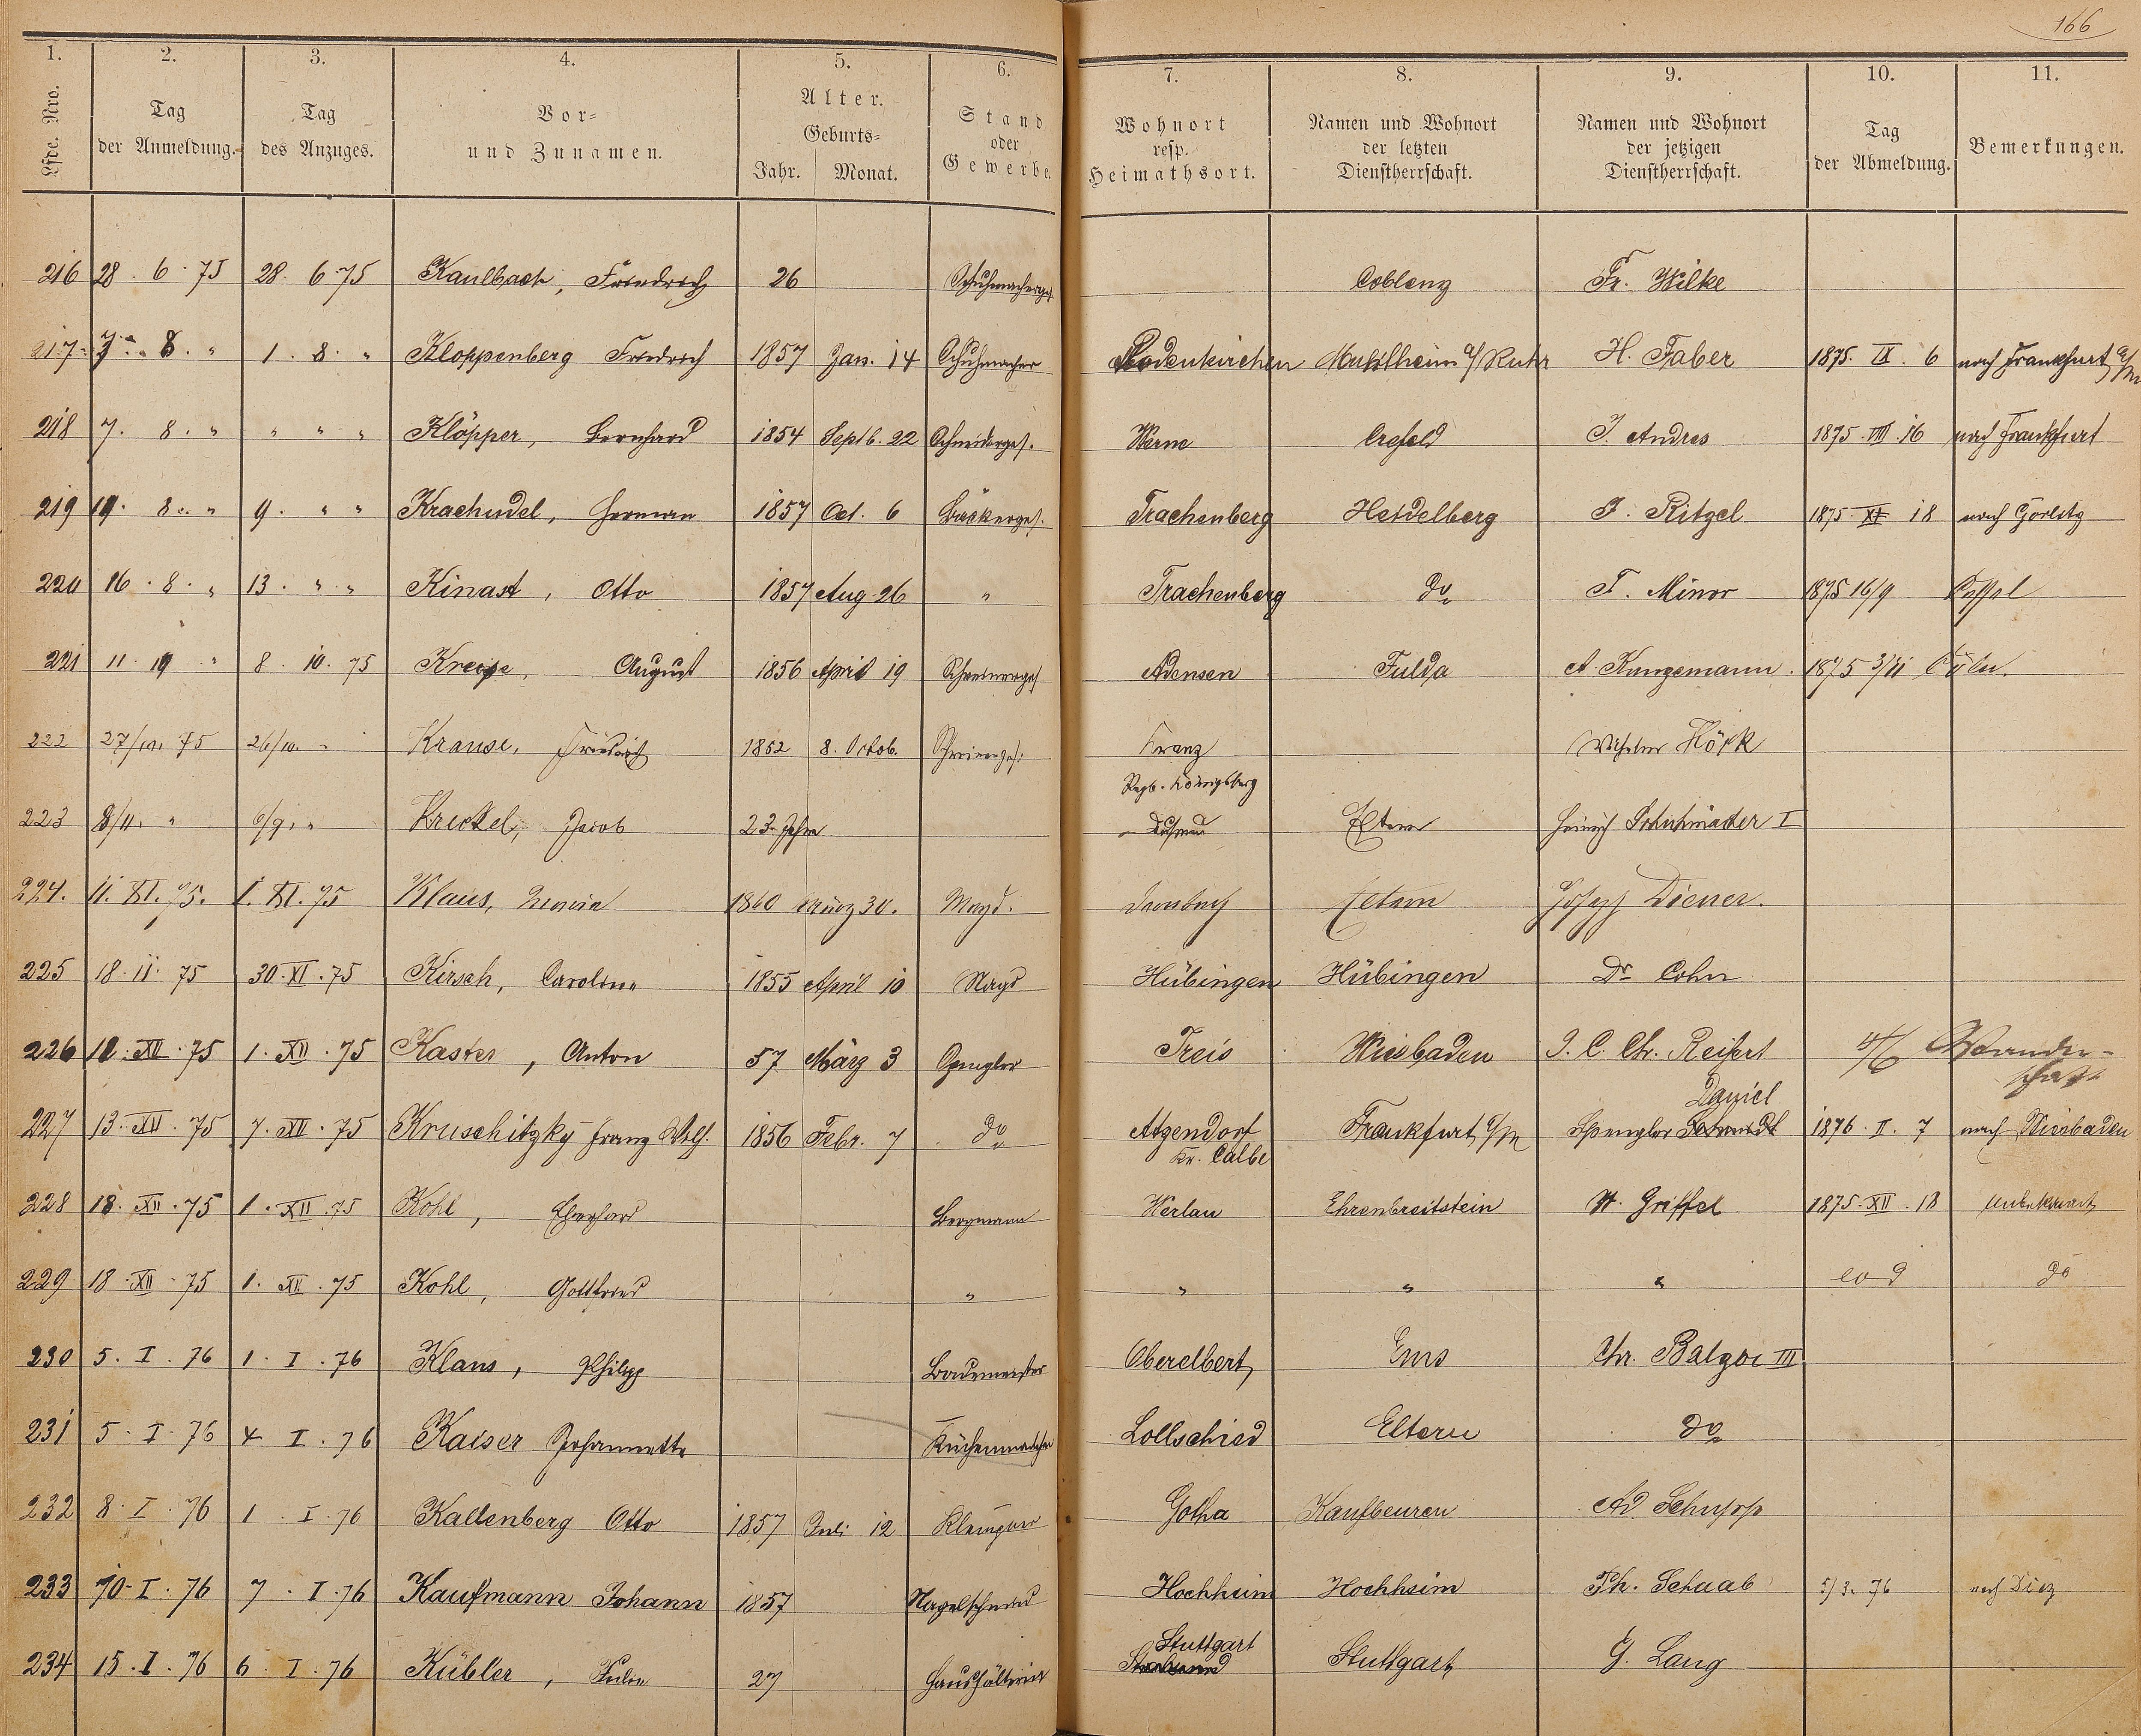 166
1. 2. 3. 4. 5. 6. 7. 8. 9. 10. 11.
Lfde. Nro. | Tag der Anmeldung. | Tag des Anzuges. | Vor- und Zunamen. | Alter. Geburts- Jahr. Monat. | Stand oder Gewerbe. | Wohnort resp. Heimathsort. | Namen und Wohnort der letzten Dienstherrschaft. | Namen und Wohnort der jetzigen Dienstherrschaft. | Tag der Abmeldung. | Bemerkungen.
216 28. 6. 75 28. 6. 75 Kaulbach, Friedrich 26 Schuhmacherges. Coblenz Fr. Wilke
217 7. 8. " 1. 8. " Kloppenberg Friedrich 1857 Jan. 14 Schuhmacher Rodenkirchen Muhlheim a/Ruhr H. Faber 1875. IX. 6 nach Frankfurt a/M
218 7. 8. " " " " Klöpper, Bernhard 1854 Septb. 22 Schneiderges. Werne Crefeld J. Andres 1875. VIII. 16 nach Frankfurt
219 19. 8. " 9. " " Krachudel, Herman 1857 Oct. 6 Bäckerges. Trachenberg Heidelberg J. Ritzel 1875. XI 18 nach Görlitz
220 16. 8. " 13. " " Kinast, Otto 1857 Aug. 26 " Trachenberg do F. Minor 1875 16/9 Cassel
221 11. 10 " 8. 10. 75 Kreise, August 1856 April 19 Schreinerges Adensen Fulda A. Kunzemann 1875 3/11 Cöln.
222 27/10. 75 26/10. " Krause, Friedrich 1852 8. Octob. Schreinerges. Kranz
Regb. Königsberg Wilhelm Höck
223 8/11. " 6/9. " Krickel, Jacob 23 Jahre Eltern Heinrich Schuhmacher I
224. 11. XI. 75. 1. XI. 75 Klaus, Maria 1860 März 30. Magd. Eltern Joseph Diener.
225 18. 11. 75 30. XI. 75 Kirsch, Caroline 1855 April 10 Magd Hübingen Hübingen Dr Cohn
226 10. XII. 75 1. XII. 75 Kaster, Anton 57 März 3 Spengler Treis Wiesbaden J. C. Chr. Reifert 4/6 Wander-
schaft
227 13. XII. 75 7. XII. 75 Kruschitzky Franz Wilh. 1856 Febr. 7 do Atzendorf
Kr. Calbe Frankfurt a/M Spengler Daniel Schmidt 1876. II. 7 nach Wiesbaden
228 18. XII. 75 1. XII. 75 Kohl, Eberhard Bergmann Werlau Ehrenbreitstein W. Griffel 1875. XII. 18 Unbekannt
229 18. XII. 75 1. XII. 75 Kohl, Gottfried " " " " eod do
230 5. I. 76 1. I. 76 Klaus, Philipp Bademeister Oberelbert Ems Chr. Balzer III
231 5. I. 76 4 I. 76 Kaiser Johannette Küchenmädchen Lollschied Eltern do
232 8. I. 76 1. I. 76 Kallenberg Otto 1857 Juli 12 Klempner Gotha Kaufbeuren Ad. Schupp
233 10. I. 76 7. I. 76 Kaufmann Johann 1857 Nagelschmied Hochheim Hochheim Ph. Schaab 5/3. 76 nach Diez
234 15. I. 76 6 I. 76 Kübler, Julie 27 Haushälterin Stuttgart Stuttgart G. Lang